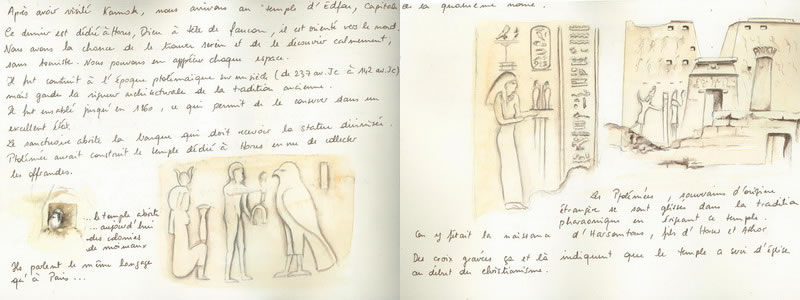 Après avoir visité Karnak, nous arrivons au temple d'Edfou, capitale de la quatrième nome.
Ce dernier est dédié à Horus, Dieu à tête de faucon, il est orienté vers le nord.
Nous avons la chance de le trouver serein et de le découvrir calmement,
sans touriste. Nous pouvons en apprécier chaque espace.
Il fut construit à l'époque ptolémaïque sur un siècle (de 237 av. Jc à 142 av. Jc)
mais garde la rigueur architecturale de la tradition ancienne.
Il fut ensablé jusqu'en 1860, ce qui permit de le conserver dans un
excellent état.
Le sanctuaire abrite la barque qui doit recevoir la statue divinisée.
Ptolémée aurait construit le temple dédié à Horus en vue de collecter
les offrandes.
... le temple abrite
... aujourd'hui
des colonies
de moineaux
Ils parlent le même langage
qu'à Paris ...
Les Ptolémées, souverains d'origine
étrangère se sont glissés dans la tradition
pharaonique en érigeant ce temple.
On y fêtait la naissance d'Harsomtous, fils d'Horus et Athor
Des croix gravées ça et là indiquent que le temple a servi d'église
au début du christianisme.